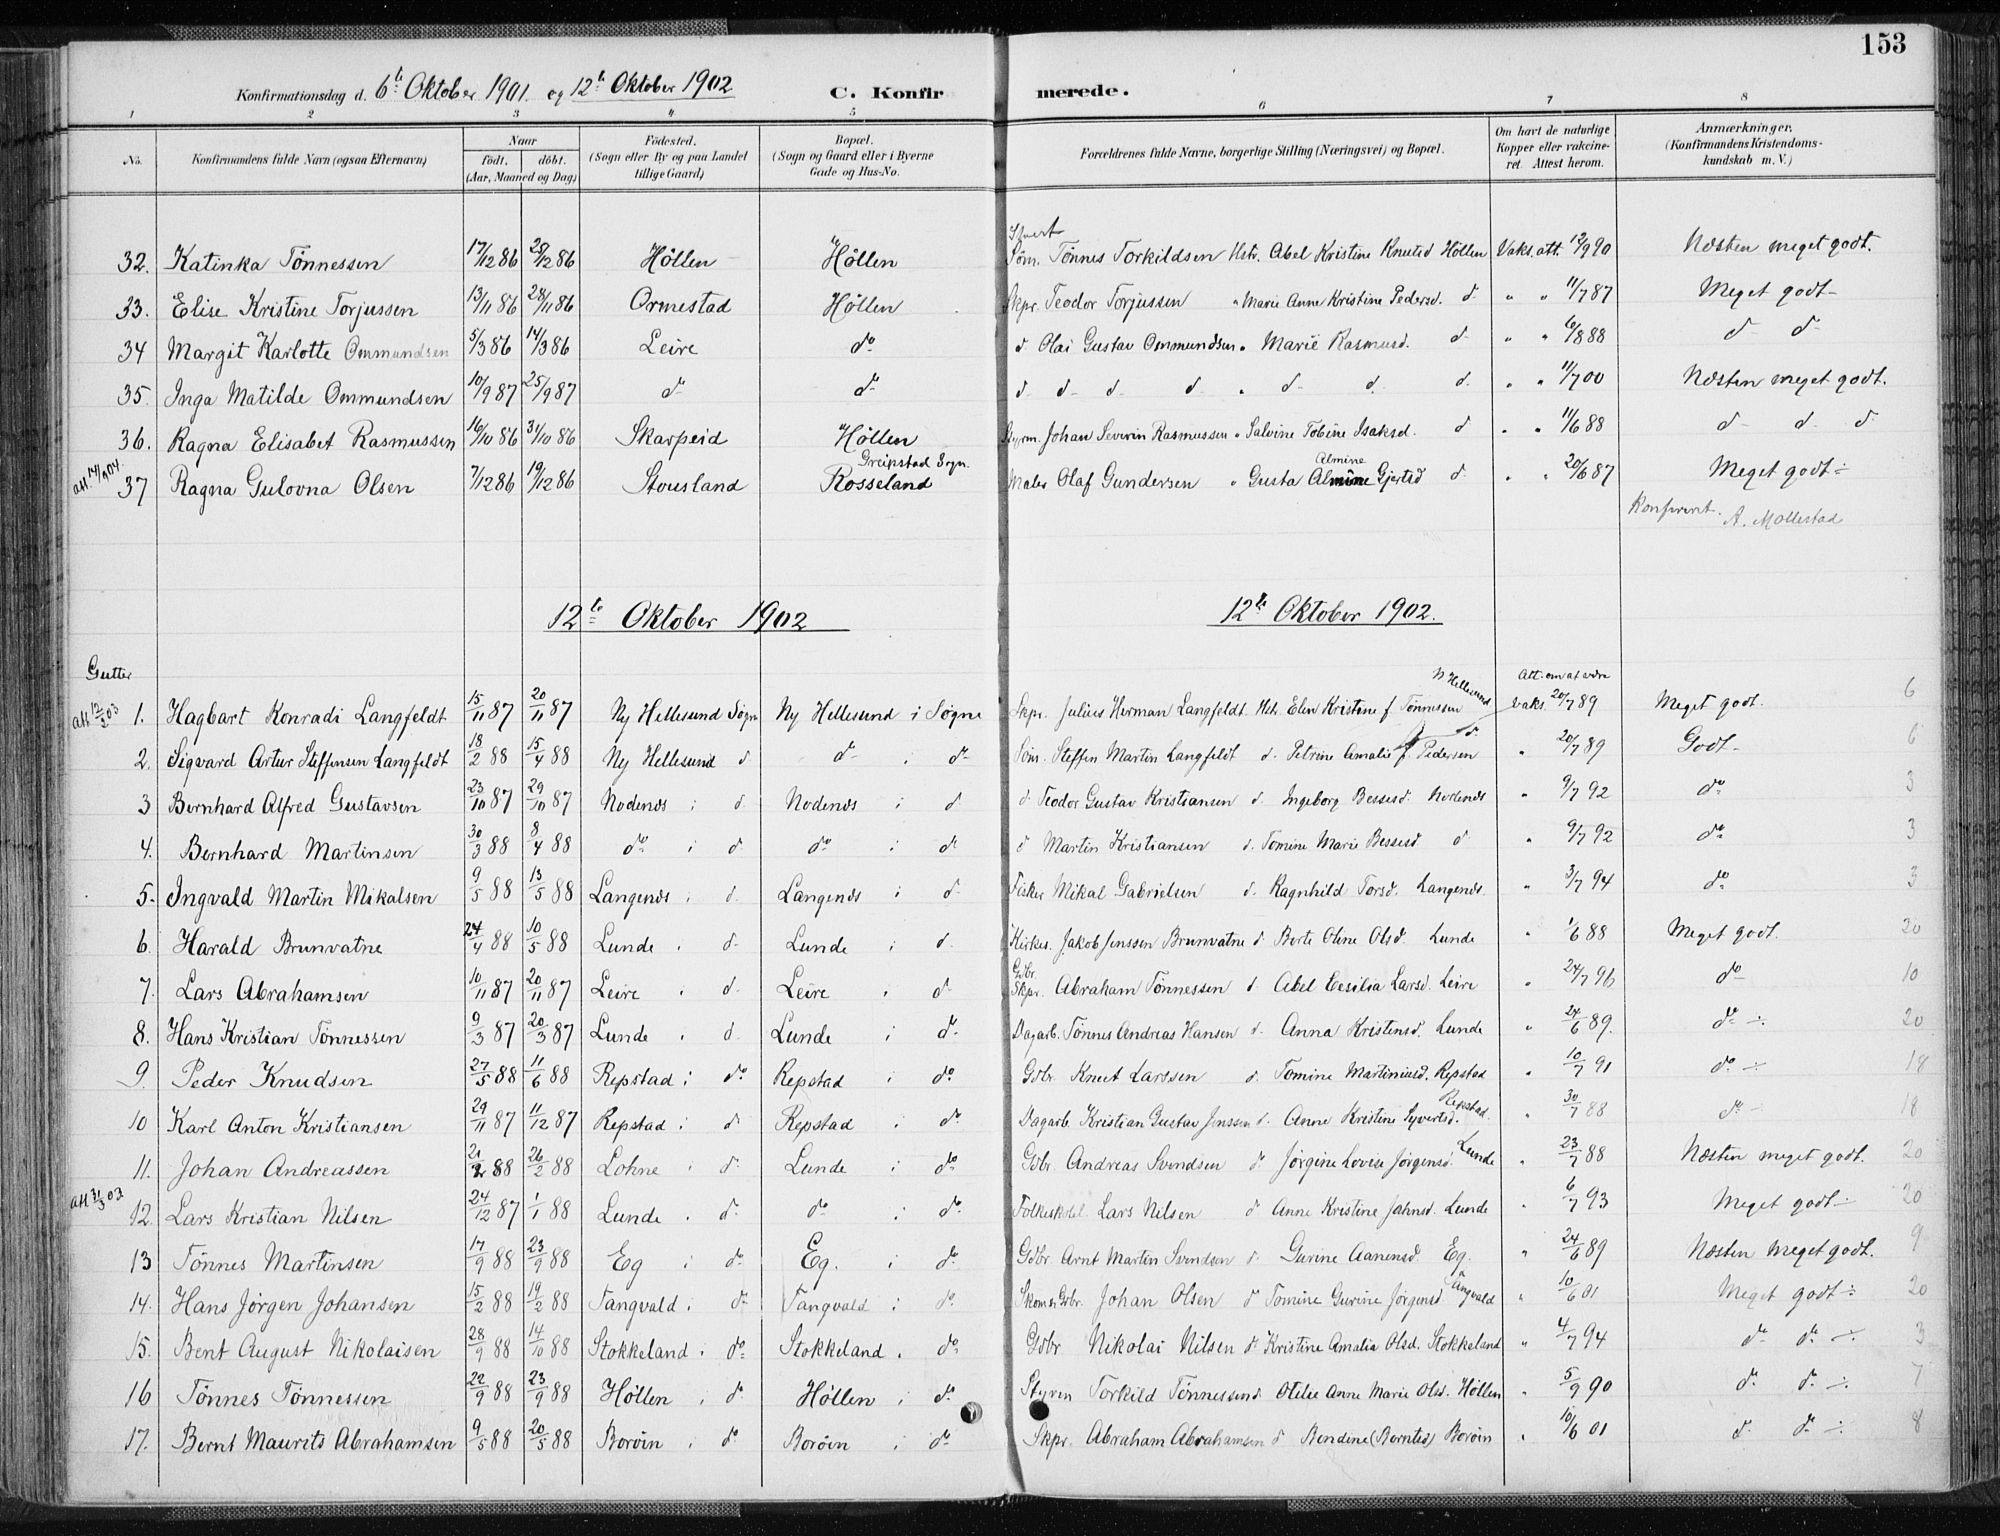 153
Konfirmationsdag d. 6te Oktober 1901. og 12te Oktober 1902 C. Konfirmerede.
1 2 3 4 5 6 7 8
No. Konfirmandens fulde Navn (ogsaa Efternavn) Naar født. døbt. (Aar, Maaned og Dag) Fødested. (Sogn eller By og paa Landet tillige Gaard) Bopæl. (Sogn og Gaard eller i Byerne Gade og Hus-No. Forældrenes fulde Navne, borgerlige Stilling (Næringsvei) og Bopæl. Om havt de naturlige Kopper eller vakcineret. Attest herom. Anmærkninger. (Konfirmandens Kristendomskundskab m. V.)
32. Katinka Tønnessen 17/12 86 28/12 86 Høllen Høllen Søm. Tønnes Torkildsen Hstr. Abel Kristine Knutsd Høllen Vaks. att. 12/9 90 Næsten meget godt.
33. Elise Kristine Torjussen 13/11 86 28/11 86 Ormestad Høllen Skpr. Teodor Torjussen " Marie Anne Kristine Pedersd. d. " " 11/7 87 Meget godt
34 Margit Karlotte Ommundsen 5/3 86 14/3 86 Leire do d Olai Gustav Ommundsen " Marie Rasmusd. d " " 6/8 88 d d
35. Inga Matilde Ommundsen 10/9 87 25/9 87 d do d d d d " d d. d. " " 11/7 00 Næsten meget godt.
36. Ragna Elisabet Rasmussen 16/10 86 31/10 86 Skarpeid Høllen Styrm. Johan Severin Rasmussen " Salvine Tobine Isaksd. d " " 11/6 88 d d. d
att. 14/9 04. 37 Ragna Gulovna Olsen 7/12 86 19/12 86 Stousland Greipstad Sogn. Rosseland Maler Olaf Gundersen " Gusta Almine Almine Gjertsd d " " 20/6 87 Meget godt
Konfereret. A. Mollestad
12te Oktober 1902 12te Oktober 1902.
Gutter
att 12/3 03 1. Hagbart Konradi Langfeldt 15/11 87 20/11 87 Ny Hellesund Søgne Ny Hellesund i Søgne Skpr. Julius Herman Langfeldt. Hstr. Elen Kristine f Tønnessen N Hellesund Att. om at være vaks. 20/7 89 Meget godt. 6
2. Sigvard Artur Steffensen Langfeldt 18/2 88 15/4 88 Ny Hellesund d d i do Søm. Steffen Martin Langfeldt d. Petrine Amalie f. Pedersen d. " 20/7 89 Godt 6
3 Bernhard Alfred Gustavsen 23/10 87 29/10 87 Nodenes i d. Nodenes i d d Teodor Gustav Kristiansen d. Ingeborg Bessesd. Nodenes " 9/7 92 do 3
4. Bernhard Martinsen 30/3 88 8/4 88 do i d. do i d d Martin Kristiansen d. Tomine Marie Bessesd d " 9/7 92 do 3
5. Ingvald Martin Mikalsen 9/5 88 13/5 88 Langenes i d. Langenes i d. Fisker Mikal Gabrielsen d. Ragnhild Torsd. Langenes. " 3/7 94 do 3
6. Harald Brunvatne 24/4 88 10/5 88 Lunde i d. Lunde i d. Kirkes. Jakob Jenssen Brunvatne d Berte Oline Olsd. Lunde " 1/6 88 Meget godt. 20
7. Lars Abrahamsen 10/11 87 20/11 87 Leire i d. Leire i d Gdbr. Skpr. Abraham Tønnessen d Abel Cesilia Larsd. Leire " 24/7 96 do 10
8. Hans Kristian Tønnessen 9/3 87 20/3 87 Lunde i d. Lunde i do Dagarb. Tønnes Andreas Hansen d. Anna Kristensd. Lunde " 24/6 89. do ÷ 20
9. Peder Knudsen 27/5 88 11/6 88 Repstad i do Repstad i do Gdbr Knut Larssen d. Tomine Martiniusd. Repstad " 10/7 91 do ÷ 18
10 Karl Anton Kristiansen 29/11 87 11/12 87 Repstad i d. Repstad i do. Dagarb. Kristian Gustav Jenssen d. Anne Kristine Syvertsd. Repstad. " 30/7 88 do 18
11. Johan Andreassen 21/2 88 26/2 88 Lohne i d. Lunde i do Gdbr. Andreas Svendsen d Jørgine Lovise Jørgensd. Lunde " 23/7 88 Næsten meget godt. 20
att 31/3 03 12. Lars Kristian Nilsen 24/12 87 1/1 88 Lunde i d. do i do. Folkeskolel. Lars Nilsen d Anne Kristine Jahnsd. Lunde " 6/7 93 Meget godt 20
13 Tønnes Martinsen 17/9 88 23/9 88 Eg i do. Eg. i do. Gdbr Arnt Martin Svendsen d Gurine Aanensd. Eg. " 24/6 89 Næsten meget godt. 9
14. Hans Jørgen Johansen 15/2 88 19/2 88 Tangvald i do Tangvald i do Skom. & Gdbr. Johan Olsen d Tomine Gurine Jørgensd Tangvald " 10/6 01 Meget godt ÷ 20
15. Bent August Nikolaisen 28/9 88 14/10 88 Stokkeland i do Stokkeland i do. Gdbr Nikolai Nilsen d Kristine Amalia Olsd. Stokkeland " 4/7 94 do do ÷ 3
16 Tønnes Tønnessen 22/9 88 23/9 88 Høllen i do Høllen i do. Styrm Torkild Tønnessen d Otilie Anne Marie Olsd. Høllen " 5/9 90 d. d. ÷ 7
17. Bernt Maurits Abrahamsen 9/5 88 20/5 88 Borøin i do Borøin i do Skpr. Abraham Abrahamsen d Bendine (Berntsd) Borøin " 10/6 01 d. do ÷ 8